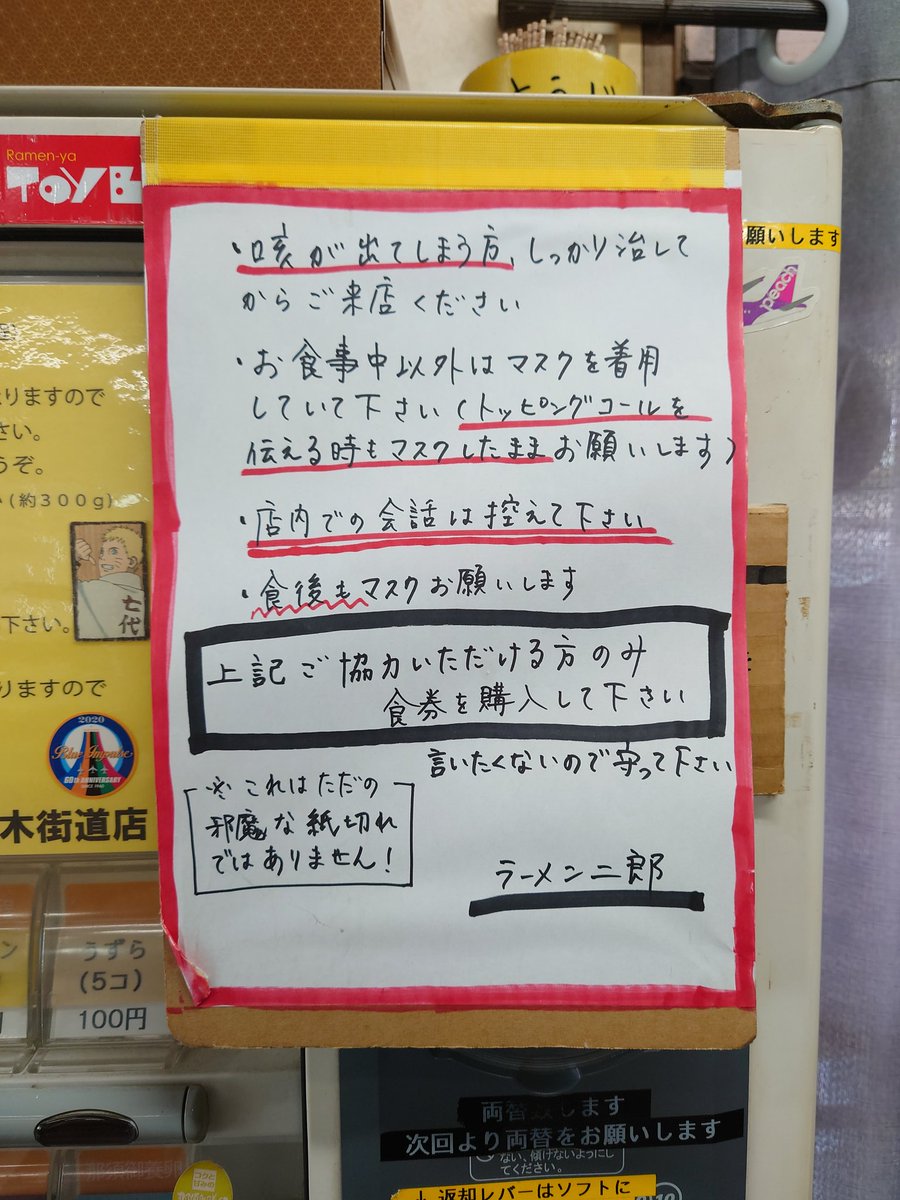 とうじ
Ramen-ya
TOYB
願いします
peach
・咳が出てしまう方、しっかり治して
からご来店ください
・お食事中以外はマスクを着用
していて下さい(トッピングコールを
伝える時もマスクしたままお願いします)
・店内での会話は控えて下さい
・食後もマスクお願いします
上記ご協力いただける方のみ
食券を購入して下さい
言いたくないので守って下さい
※これはただの
邪魔な紙切れ
ではありません!
ラーメン二郎
りますので
さい。
うぞ。
(約300g)
七代
下さい。
りますので
2020
Blue Impulse
60th ANNIVERSARY
SINCE 1960
木街道店
ン
うずら
(5コ)
100円
円
両替致します
次回より両替をお願いします
ない、傾けないようにし
てください。
返却レバーはソフトに